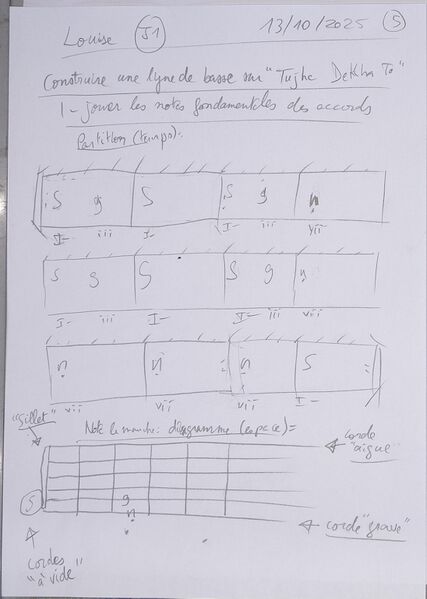 Louise J1 13/10/2025 5
Construire une ligne de basse sur "Tujhe Dekha To"
1- jouer les notes fondamentales des accords
Partition (temps):
S g S S g n
I- iii I- I- iii vii
S g S S g n
I- iii I- I- iii vii
n n n S
vii vii vii I-
"Sillet" Note le manche: diagramme (espace)=
corde "aigue"
S
g
n
corde "grave"
cordes
"à vide"